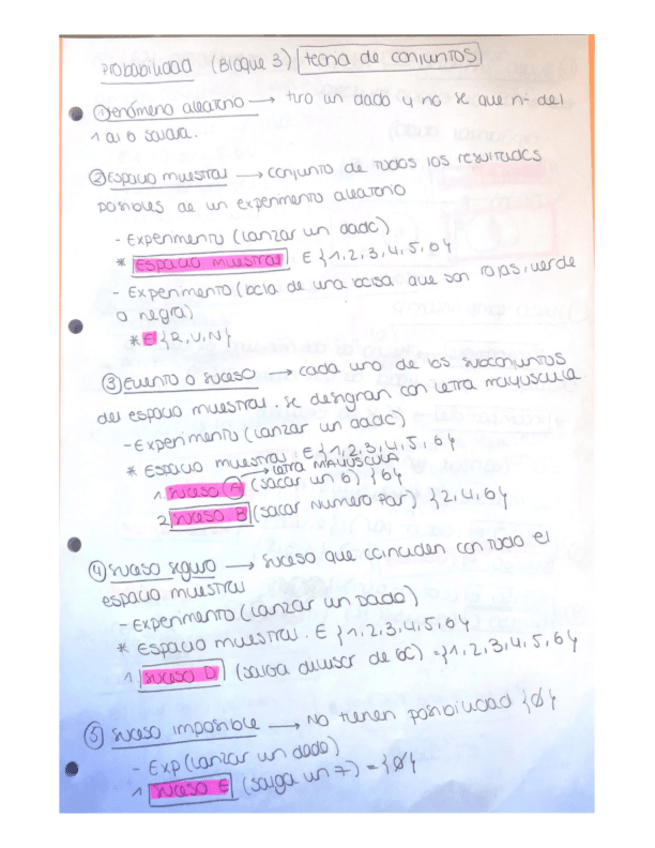 PROBABILIDAD (BLOQUE 3) teoria de conjuntos
① Fenómeno aleatorio → tiro un dado y no se que nº del
1 al 6 saldra.
② Espacio muestral → conjunto de todos los resultados
posibles de un experimento aleatorio
- Experimento (lanzar un dado)
* Espacio muestral E {1,2,3,4,5,6}
- Experimento (bola de una bolsa que son rojas, verde
o negra)
* E {R,V,N}
③ Evento o suceso → cada uno de los subconjuntos
del espacio muestral. Se designan con letra mayuscula.
- Experimento (lanzar un dado)
* Espacio muestral. E {1,2,3,4,5,6}
→ letra MAYUSCULA
1. Suceso A (sacar un 6) {6}
2. Suceso B (sacar numero par) {2,4,6}
④ Suceso seguro → suceso que coinciden con todo el
espacio muestral
- Experimento (lanzar un dado)
* Espacio muestral. E {1,2,3,4,5,6}
1. Suceso D (salga divisor de 60) = {1,2,3,4,5,6}
⑤ Suceso imposible → No tienen posibilidad {Ø}
- Exp (lanzar un dado)
1 Suceso E (salga un 7) = {Ø}